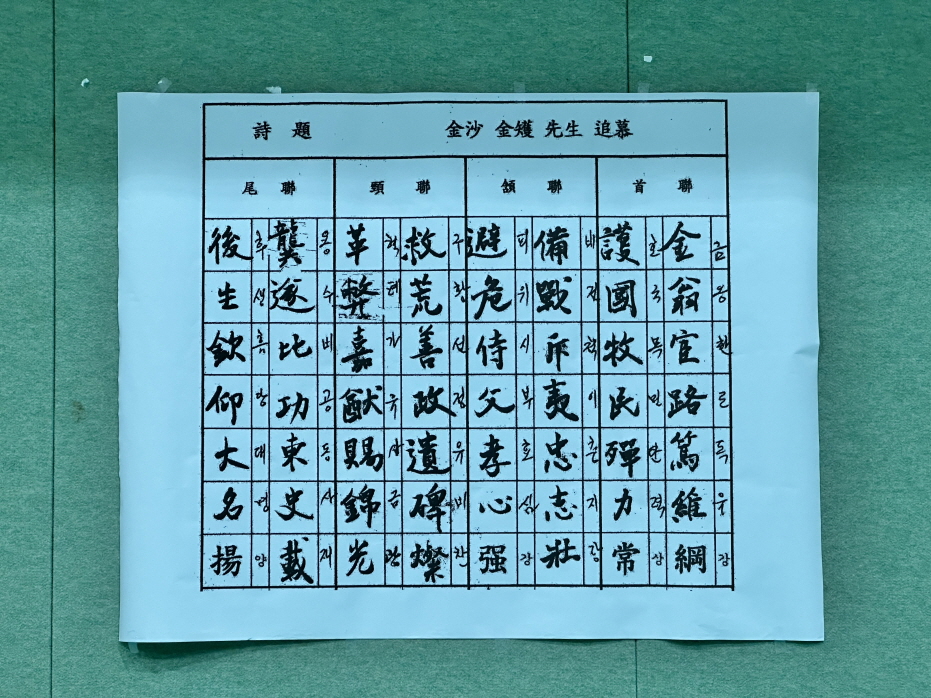 詩 題
金沙 金矱 先生 追慕
首 聯
金翁宦路篤維綱
금옹환로독유강
護國牧民殫力常
호국목민탄력상
頷 聯
備戰斥夷忠志壯
비전척이충지장
避危侍父孝心强
피위시부효심강
頸 聯
救荒善政遺碑燦
구황선정유비찬
革弊嘉猷賜錦光
혁폐가유사금광
尾 聯
龔遂比功東史載
공수비공동사재
後生欽仰大名揚
후생흠앙대명양